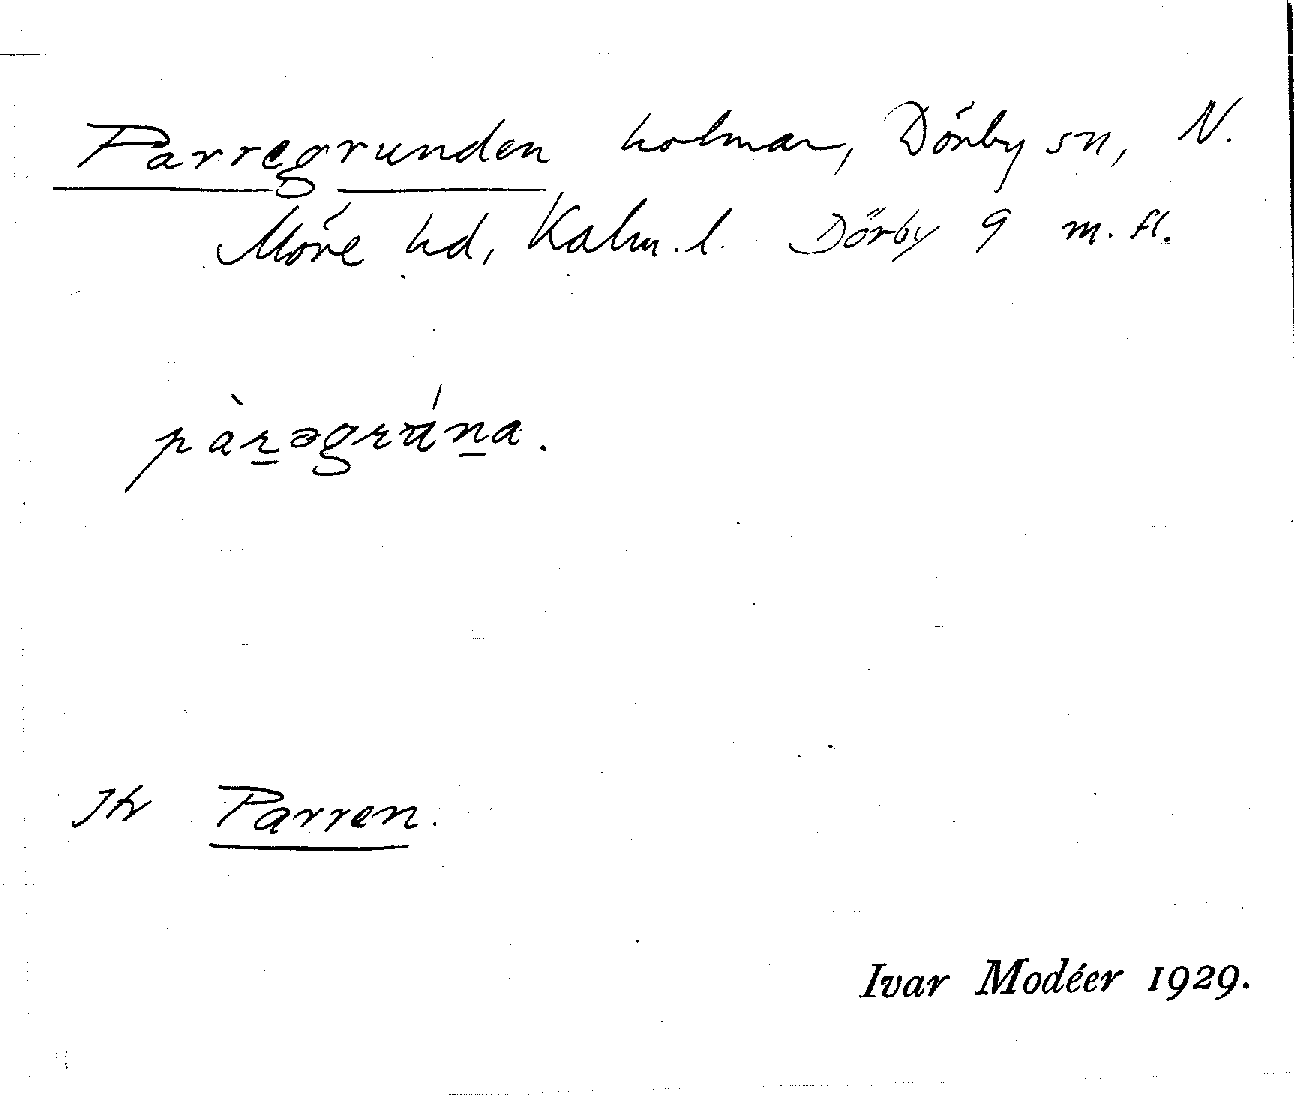 Parregrunden holmar, Dörby sn, N.
Möre hd, Kalm. l. Dörby 9 m. fl.
pàr̲əgrún̲a.
Jfr Parren.
Ivar Modéer 1929.